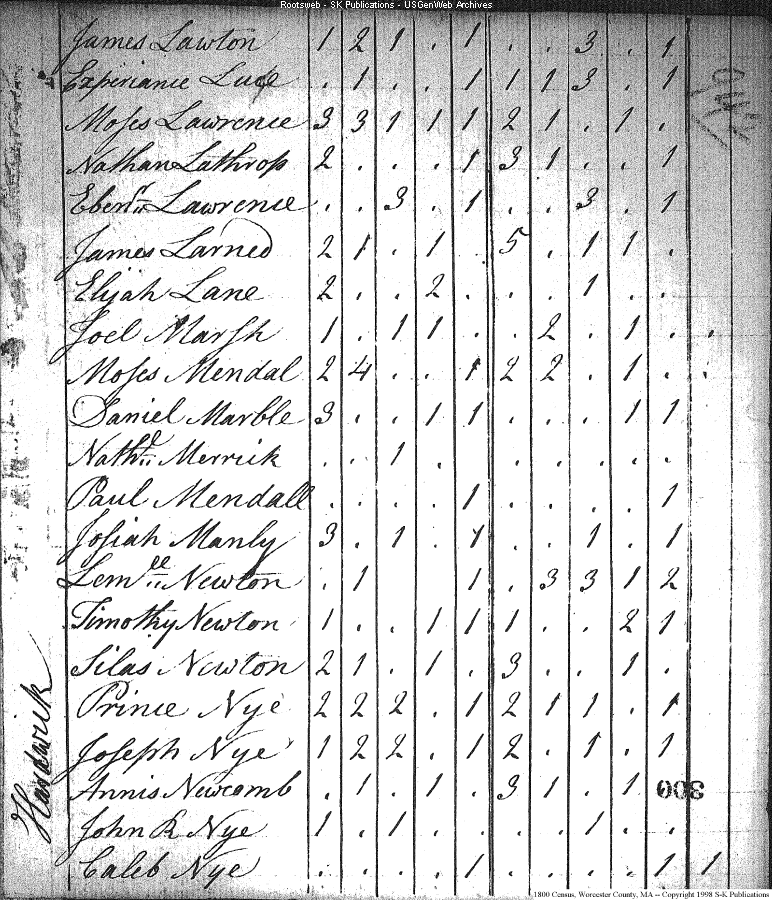 Rootsweb - SK Publications - USGenWeb Archives
James Lawton 1 2 1 . 1 . . 3 . 1
Experiance Luce . 1 . . 1 1 1 3 . 1
Moses Lawrence 3 3 1 1 1 2 1 . 1 .
Nathan Lathrop 2 . . . 1 3 1 . . 1
Ebenr Lawrence . . 3 . 1 . . 3 . 1
James Larned 2 1 . 1 . 5 . 1 1 .
Elijah Lane 2 . . 2 . . . 1 . .
Joel Marsh 1 . 1 1 . . 2 . 1 . .
Moses Mendal 2 4 . . 1 2 2 . 1 . .
Daniel Marble 3 . . 1 1 . . . 1 1
Nathl Merrick . . 1 . . . . . . .
Paul Mendall . . . . 1 . . . . 1
Josiah Manly 3 . 1 . 1 . . 1 . 1
Lemll Newton . 1 1 . 3 3 1 2
Timothy Newton 1 . . 1 1 1 . . 2 1
Silas Newton 2 1 . 1 . 3 . . 1 .
Prince Nye 2 2 2 . 1 2 1 1 . 1
Joseph Nye 1 2 2 . 1 2 . 1 . 1
Annis Newcomb . 1 . 1 . 3 1 . 1
300
John R Nye 1 . 1 . . . . 1 . .
Caleb Nye . . . . 1 . . . . 1 1
Hardwick
1800 Census, Worcester County, MA -- Copyright 1998 S-K Publications